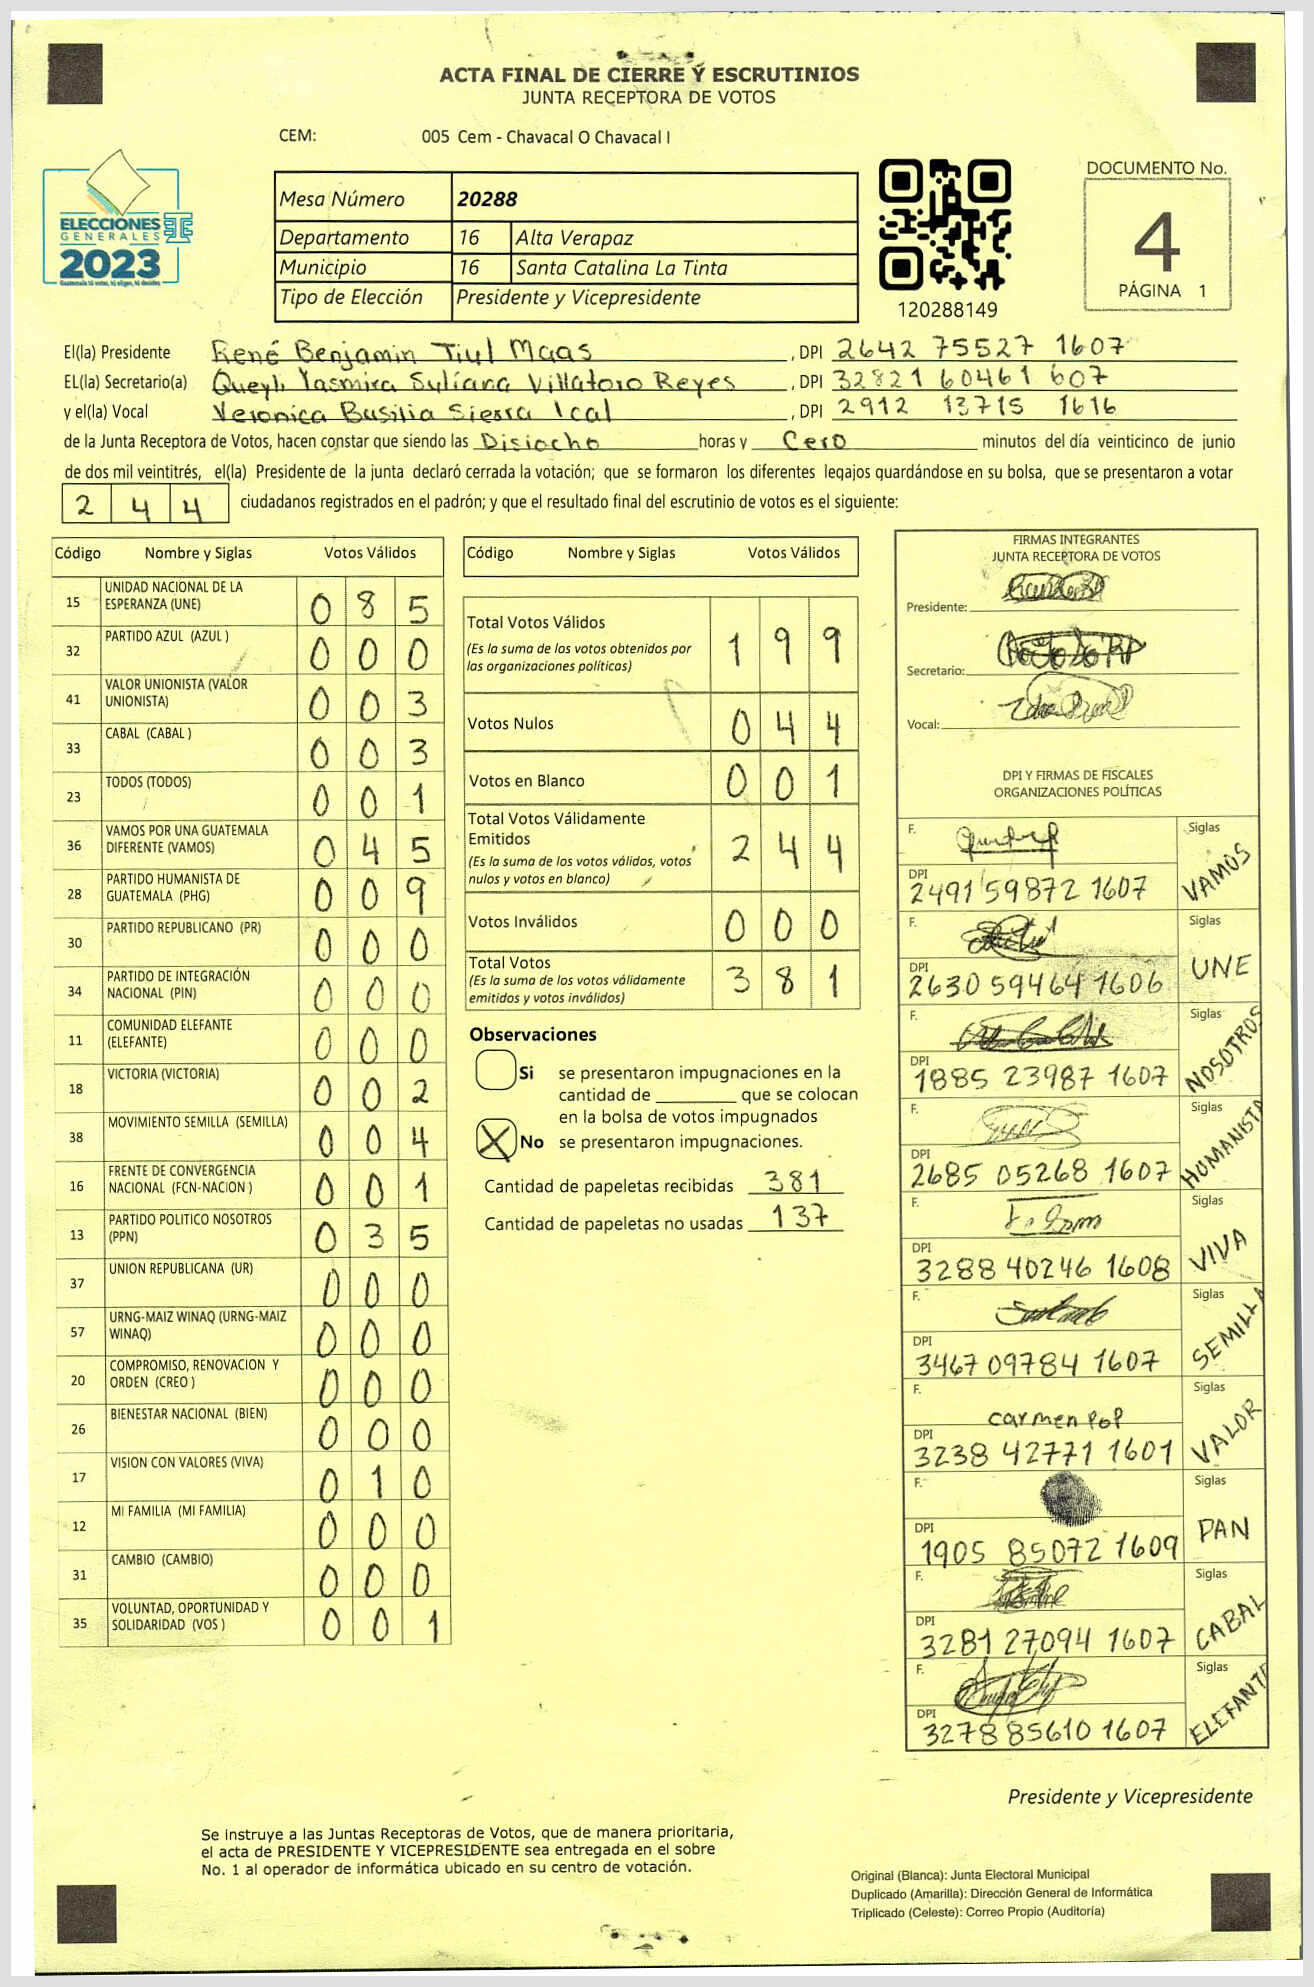 ACTA FINAL DE CIERRE Y ESCRUTINIOS
JUNTA RECEPTORA DE VOTOS
CEM: 005 Cem - Chavacal O Chavacal I
ELECCIONES
GENERALES
2023
Guatemala tú votas, tú eliges, tú decides
Mesa Número 20288
Departamento 16 Alta Verapaz
Municipio 16 Santa Catalina La Tinta
Tipo de Elección Presidente y Vicepresidente
120288149
DOCUMENTO No.
4
PÁGINA 1
El(la) Presidente René Benjamin Tiul Maas , DPI 2642 75527 1607
EL(la) Secretario(a) Queyli Yasmira Suliana Villatoro Reyes , DPI 32821 60461 607
y el(la) Vocal Veronica Basilia Sierra Ical , DPI 2912 13715 1616
de la Junta Receptora de Votos, hacen constar que siendo las Disiocho horas y Cero minutos del día veinticinco de junio
de dos mil veintitrés, el(la) Presidente de la junta declaró cerrada la votación; que se formaron los diferentes legajos guardándose en su bolsa, que se presentaron a votar
2 4 4 ciudadanos registrados en el padrón; y que el resultado final del escrutinio de votos es el siguiente:
Código Nombre y Siglas Votos Válidos
15 UNIDAD NACIONAL DE LA ESPERANZA (UNE) 0 8 5
32 PARTIDO AZUL (AZUL ) 0 0 0
41 VALOR UNIONISTA (VALOR UNIONISTA) 0 0 3
33 CABAL (CABAL ) 0 0 3
23 TODOS (TODOS) 0 0 1
36 VAMOS POR UNA GUATEMALA DIFERENTE (VAMOS) 0 4 5
28 PARTIDO HUMANISTA DE GUATEMALA (PHG) 0 0 9
30 PARTIDO REPUBLICANO (PR) 0 0 0
34 PARTIDO DE INTEGRACIÓN NACIONAL (PIN) 0 0 0
11 COMUNIDAD ELEFANTE (ELEFANTE) 0 0 0
18 VICTORIA (VICTORIA) 0 0 2
38 MOVIMIENTO SEMILLA (SEMILLA) 0 0 4
16 FRENTE DE CONVERGENCIA NACIONAL (FCN-NACION ) 0 0 1
13 PARTIDO POLITICO NOSOTROS (PPN) 0 3 5
37 UNION REPUBLICANA (UR) 0 0 0
57 URNG-MAIZ WINAQ (URNG-MAIZ WINAQ) 0 0 0
20 COMPROMISO, RENOVACION Y ORDEN (CREO ) 0 0 0
26 BIENESTAR NACIONAL (BIEN) 0 0 0
17 VISION CON VALORES (VIVA) 0 1 0
12 MI FAMILIA (MI FAMILIA) 0 0 0
31 CAMBIO (CAMBIO) 0 0 0
35 VOLUNTAD, OPORTUNIDAD Y SOLIDARIDAD (VOS ) 0 0 1
Código Nombre y Siglas Votos Válidos
Total Votos Válidos 1 9 9
(Es la suma de los votos obtenidos por
las organizaciones políticas)
Votos Nulos 0 4 4
Votos en Blanco 0 0 1
Total Votos Válidamente
Emitidos 2 4 4
(Es la suma de los votos válidos, votos
nulos y votos en blanco)
Votos Inválidos 0 0 0
Total Votos 3 8 1
(Es la suma de los votos válidamente
emitidos y votos inválidos)
Observaciones
Si se presentaron impugnaciones en la
cantidad de ________ que se colocan
en la bolsa de votos impugnados
X No se presentaron impugnaciones.
Cantidad de papeletas recibidas 381
Cantidad de papeletas no usadas 137
FIRMAS INTEGRANTES
JUNTA RECEPTORA DE VOTOS
Presidente:
Secretario:
Vocal:
DPI Y FIRMAS DE FISCALES
ORGANIZACIONES POLÍTICAS
F. Siglas
DPI 2491 59872 1607 VAMOS
F. Siglas
DPI 2630 59464 1606 UNE
F. Siglas
DPI 1885 23987 1607 NOSOTROS
F. Siglas
DPI 2685 05268 1607 HUMANISTA
F. Siglas
DPI 3288 40246 1608 VIVA
F. Siglas
DPI 3467 09784 1607 SEMILLA
F. carmen pop Siglas
DPI 3238 42771 1601 VALOR
F. Siglas
DPI 1905 85072 1609 PAN
F. Siglas
DPI 3281 27094 1607 CABAL
F. Siglas
DPI 3278 85610 1607 ELEFANTE
Presidente y Vicepresidente
Se instruye a las Juntas Receptoras de Votos, que de manera prioritaria,
el acta de PRESIDENTE Y VICEPRESIDENTE sea entregada en el sobre
No. 1 al operador de informática ubicado en su centro de votación.
Original (Blanca): Junta Electoral Municipal
Duplicado (Amarilla): Dirección General de Informática
Triplicado (Celeste): Correo Propio (Auditoría)